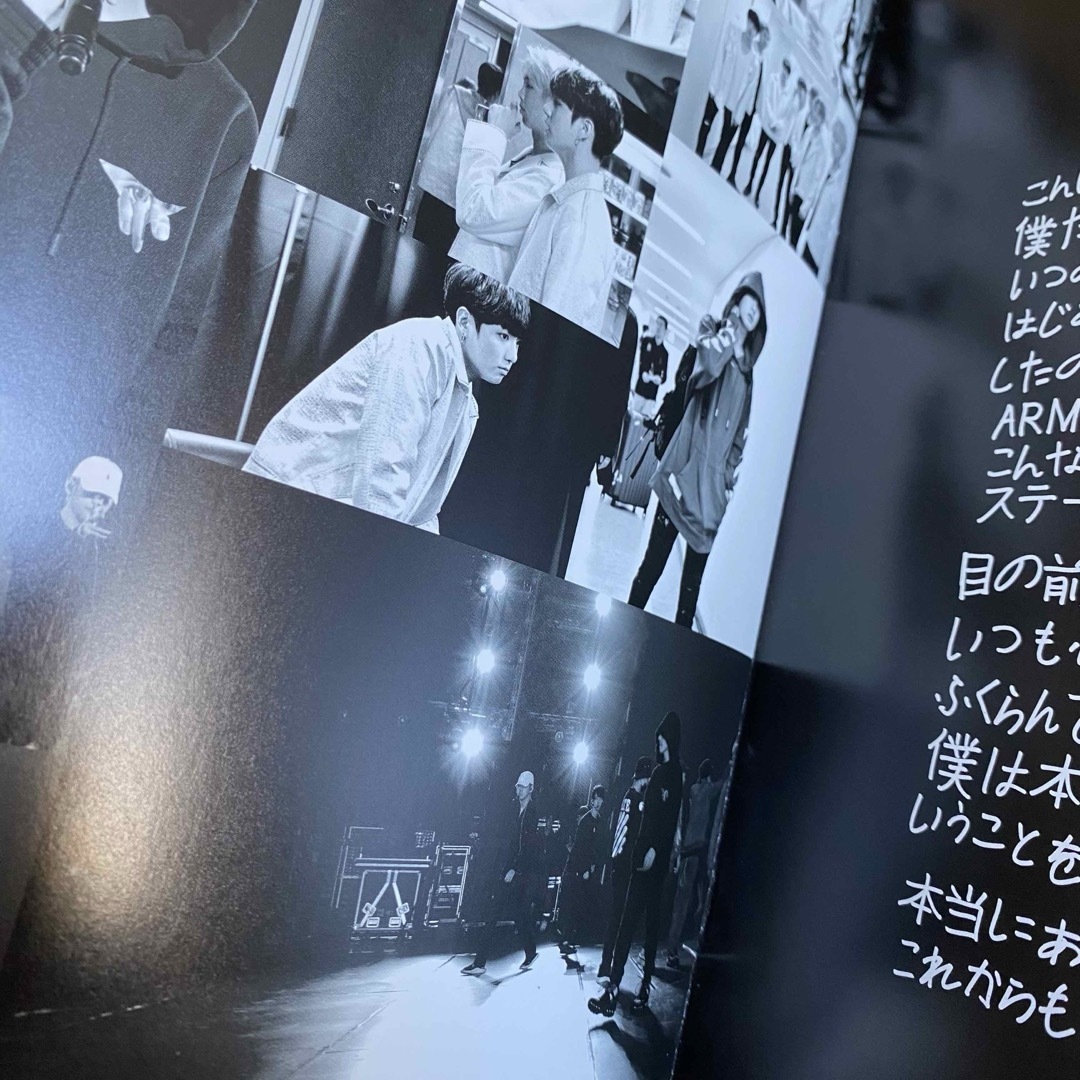 こん
僕た
いつの
はじ
したの
ARM
こんな
ステー
目の前
いつも
ふくらんで
僕は本
いうことを
本当にあ
これからも